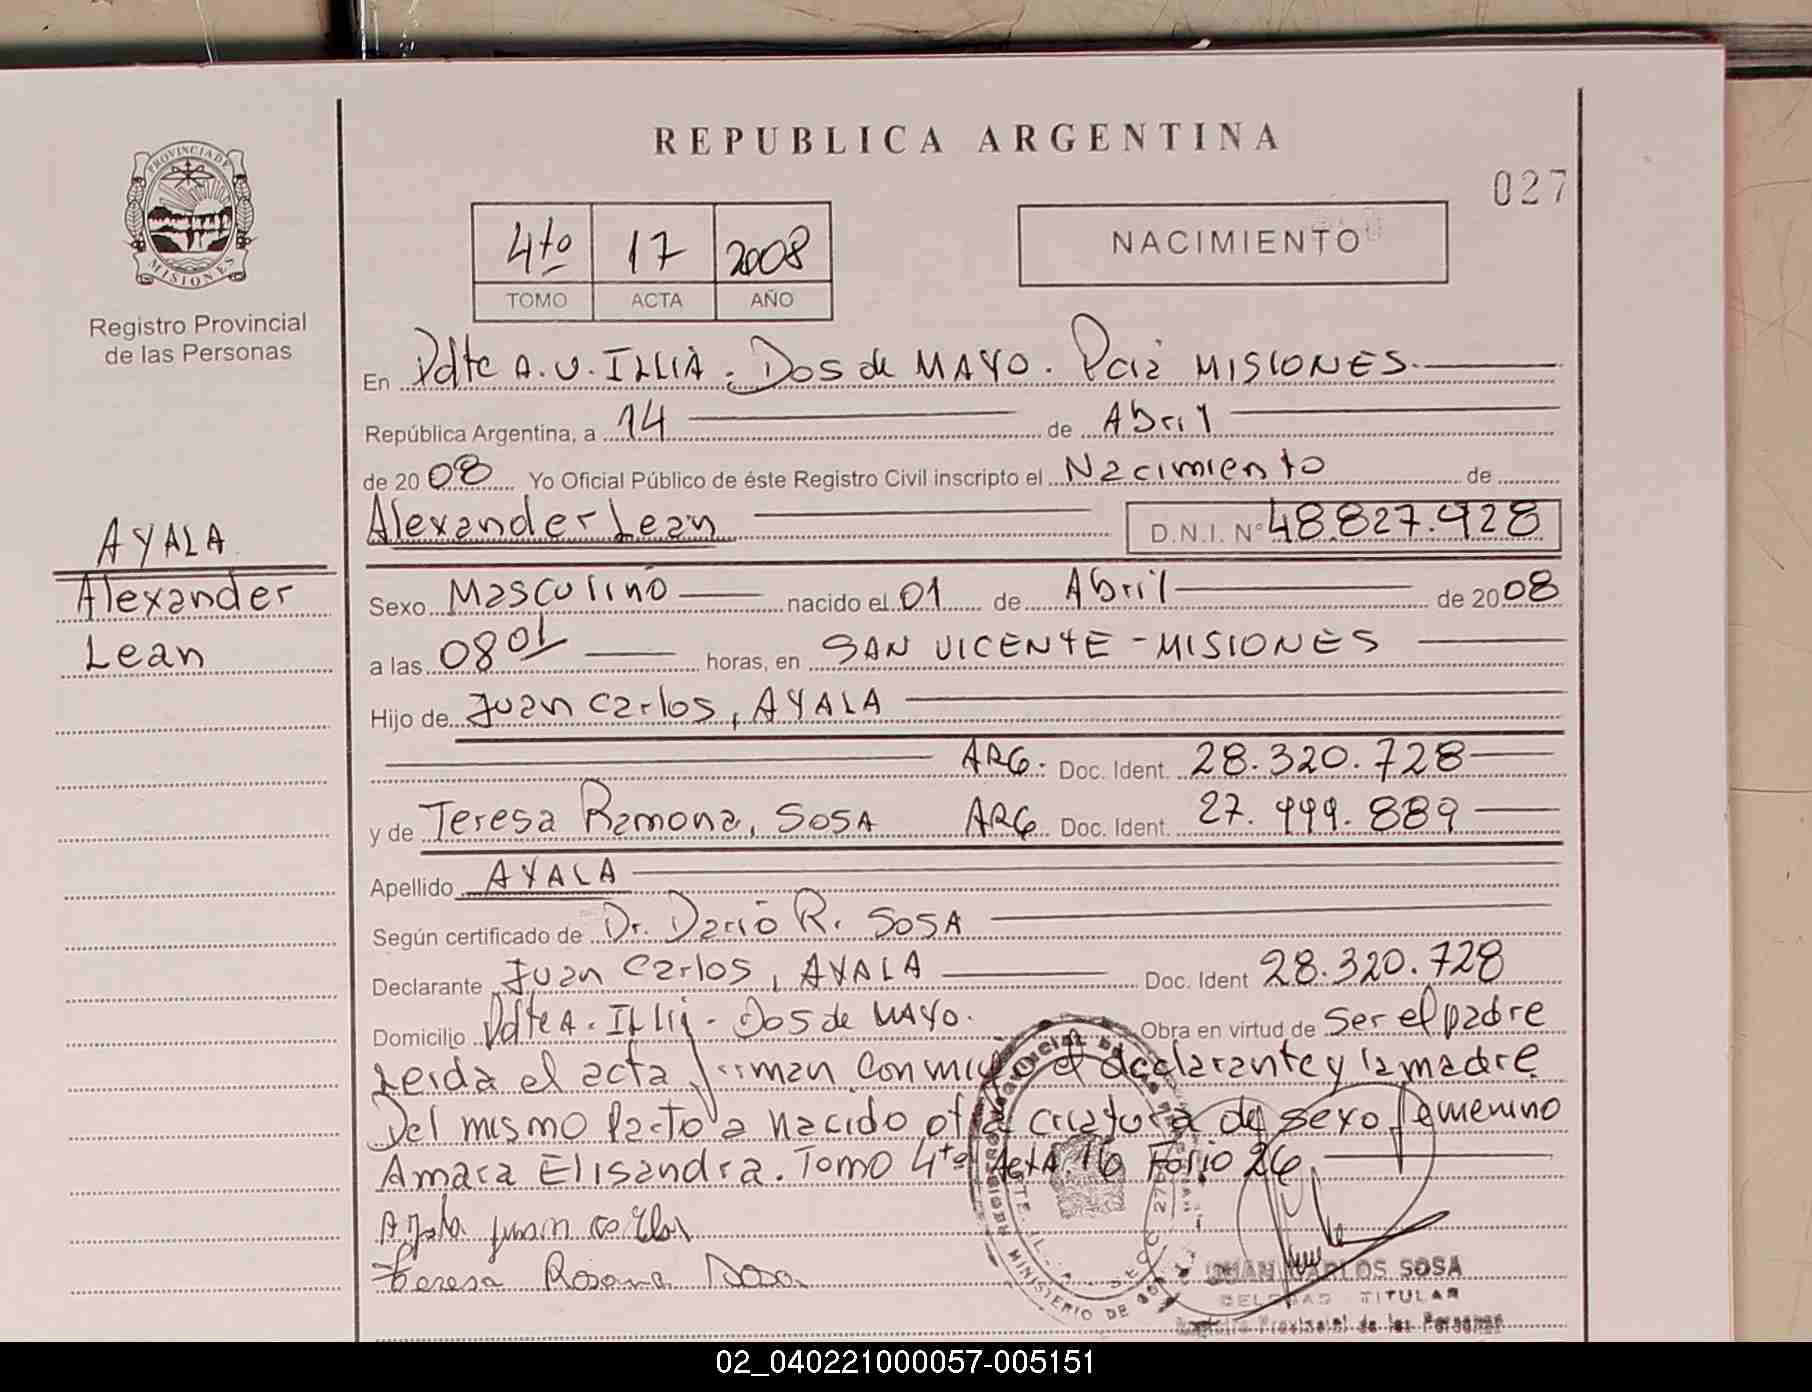 REPUBLICA ARGENTINA
027
PROVINCIA DE MISIONES
Registro Provincial
de las Personas
4to 17 2008
TOMO ACTA AÑO
NACIMIENTO
En Pdte A. U. ILLIA. Dos de MAYO. Pcia MISIONES.
República Argentina, a 14 de Abril
de 2008 Yo Oficial Público de éste Registro Civil inscripto el Nacimiento de
Alexander Lean D.N.I. Nº 48.827.928
AYALA
Alexander
Lean
Sexo Masculino nacido el 01 de Abril de 2008
a las 08 01 horas, en SAN VICENTE - MISIONES
Hijo de Juan Carlos, AYALA
ARG. Doc. Ident. 28.320.728
y de Teresa Ramona, SOSA ARG Doc. Ident. 27.999.889
Apellido AYALA
Según certificado de Dr. Dario R. SOSA
Declarante Juan Carlos, AYALA Doc. Ident 28.320.728
Domicilio Pdte A. Illia - Dos de MAYO. Obra en virtud de ser el padre
Leida el acta firman conmigo el declarante y la madre
Del mismo Parto a nacido otra criatura de sexo femenino
Amara Elisandra. Tomo 4to Acta 16 Folio 26
Ayala juan carlos
teresa Ramona Sosa
JUAN CARLOS SOSA
DELEGADO TITULAR
Registro Provincial de las Personas
MINISTERIO DE
02_040221000057-005151